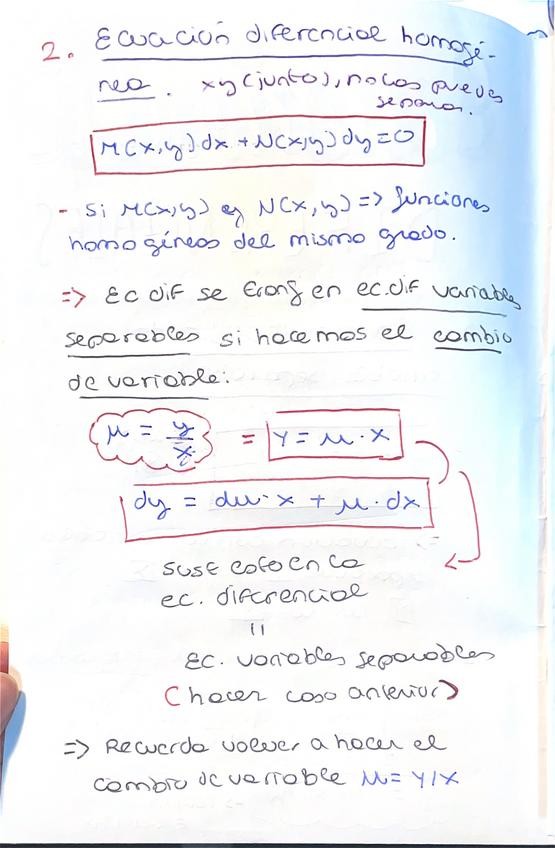 2. Ecuación diferencial homogé-
nea. xy (junto), no las puedes
separar.
M(x,y) dx + N(x,y) dy = 0
- Si M(x,y) ey N(x,y) => funciones
homogéneas del mismo grado.
=> Ec dif se transf en ec.dif variables
separables si hacemos el cambio
de variable:
μ = y/x = y = μ · x
dy = du · x + μ · dx
sust esto en la
ec. diferencial
||
Ec. variables separables
(hacer caso anterior)
=> Recuerda volver a hacer el
cambio de variable μ = y/x